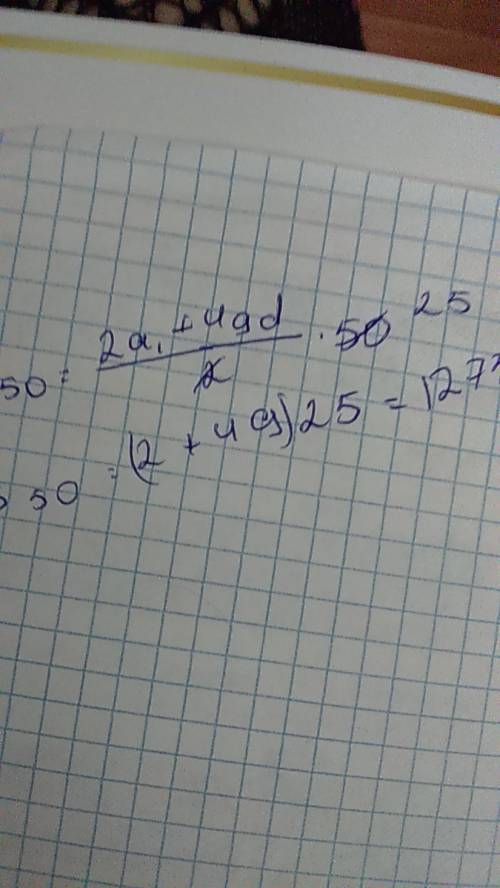 50 = \frac{2a₁ + 49d}{2} · 50 25
50 = (2 + 49)25 = 127